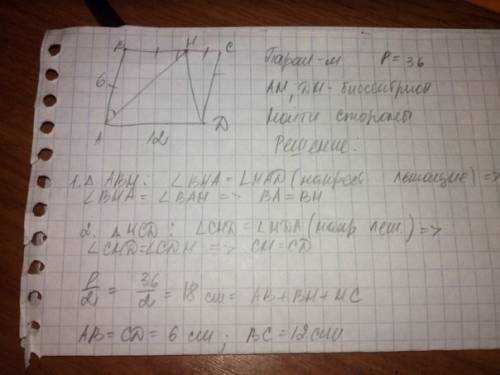 B H C
Парал-м P = 36
6
AH, DH - биссектрисы
A 12 D
Найти стороны
Решение:
1. △ ABH: ∠BHA = ∠HAD (накрест лежащие) =>
∠BHA = ∠BAH => BA = BH
2. △ HCD: ∠CHD = ∠HDA (накр леж.) =>
∠CHD = ∠CDH => CH = CD
P/2 = 36/2 = 18 см = AB + BH + HC
AB = CD = 6 см ; BC = 12 см